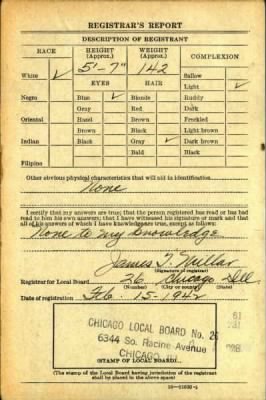 REGISTRAR'S REPORT
DESCRIPTION OF REGISTRANT
RACE HEIGHT (Approx.) WEIGHT (Approx.) COMPLEXION
5' 7" 142
White ✓ Sallow
EYES HAIR Light ✓
Negro Blue ✓ Blonde Ruddy
Gray Red Dark
Oriental Hazel Brown Freckled
Brown Black Light brown
Indian Black Gray ✓ Dark brown
Bald Black
Filipino
Other obvious physical characteristics that will aid in identification
None
I certify that my answers are true; that the person registered has read or has had
read to him his own answers; that I have witnessed his signature or mark and that
all of his answers of which I have knowledge are true, except as follows:
None to my knowledge
James T.
(Signature of registrar)
Registrar for Local Board 26 Chicago Ill
(Number) (City or county)
Date of registration Feb. 15-1942
CHICAGO LOCAL BOARD No. 26
6344 So. Racine Avenue
CHICAGO
(STAMP OF LOCAL BOARD)
(The stamp of the Local Board having jurisdiction of the registrant
shall be placed in the above space)